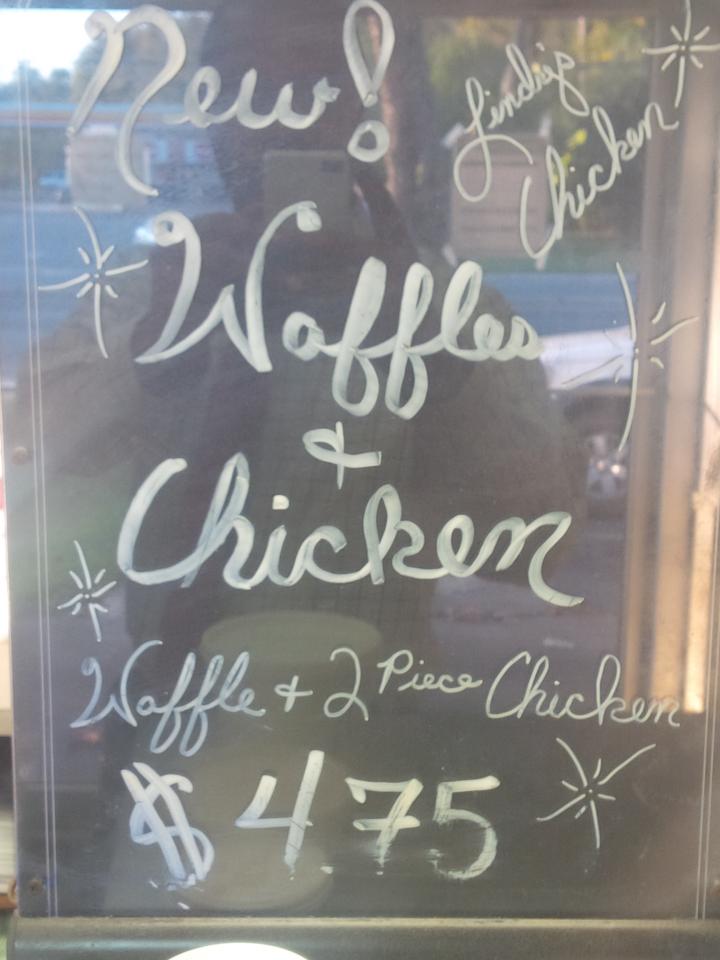 New!
Lindy's
Chicken
Waffles
&
Chicken
Waffle + 2 Piece Chicken
$4.75